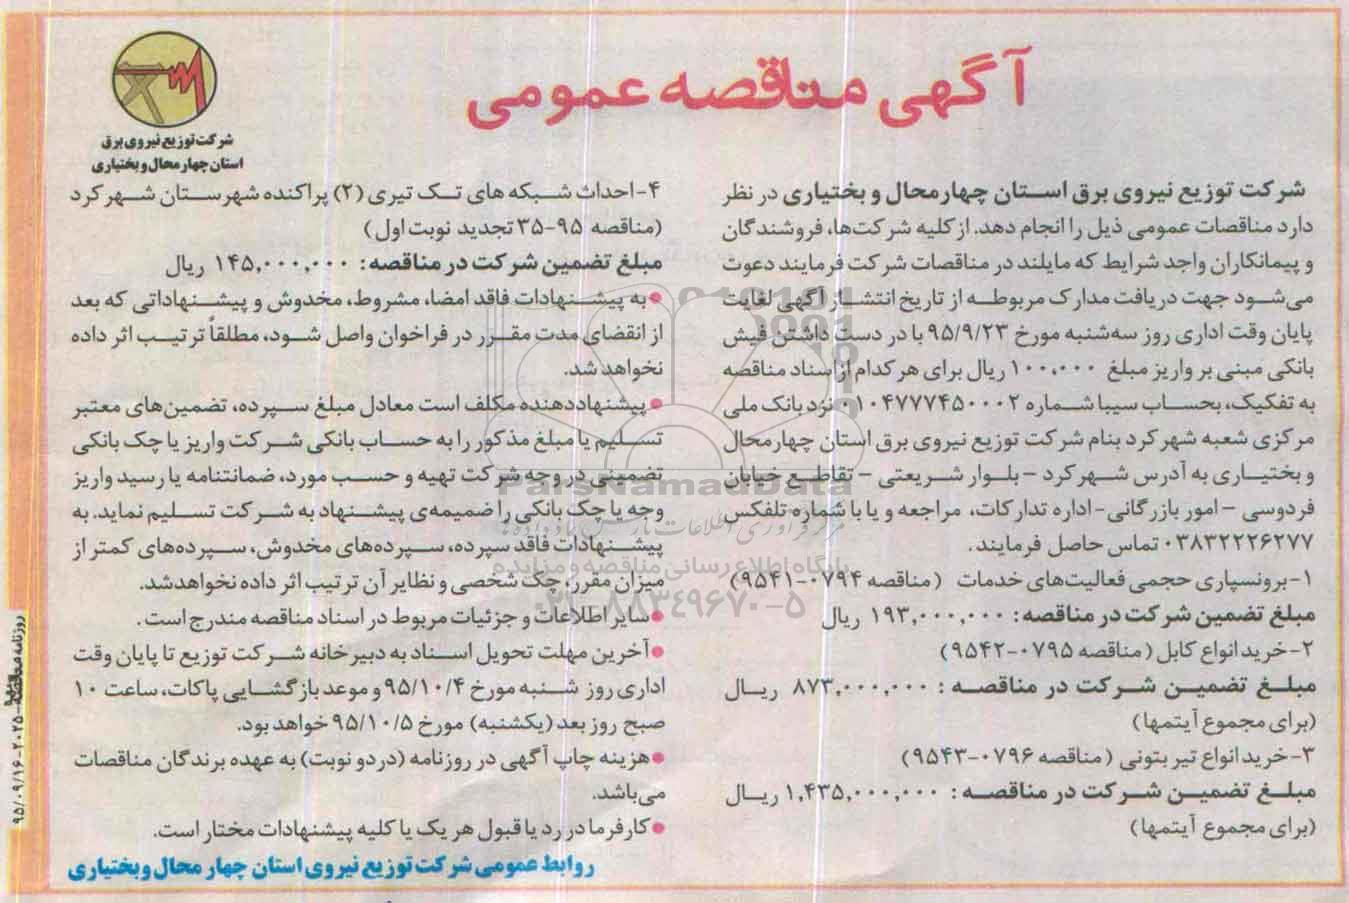 آگهی مناقصه عمومی
شرکت توزیع نیروی برق
استان چهارمحال و بختیاری
شرکت توزیع نیروی برق استان چهارمحال و بختیاری در نظر
دارد مناقصات عمومی ذیل را انجام دهد. از کلیه شرکت‌ها، فروشندگان
و پیمانکاران واجد شرایط که مایلند در مناقصات شرکت فرمایند دعوت
می‌شود جهت دریافت مدارک مربوطه از تاریخ انتشار آگهی لغایت
پایان وقت اداری روز سه‌شنبه مورخ ۹۵/۹/۲۳ با در دست داشتن فیش
بانکی مبنی بر واریز مبلغ ۱۰۰,۰۰۰ ریال برای هر کدام از اسناد مناقصه
به تفکیک، بحساب سیبا شماره ۰۱۰۴۷۷۷۴۵۰۰۰۲ نزد بانک ملی
مرکزی شعبه شهرکرد بنام شرکت توزیع نیروی برق استان چهارمحال
و بختیاری به آدرس شهرکرد – بلوار شریعتی – تقاطع خیابان
فردوسی – امور بازرگانی- اداره تدارکات، مراجعه و یا با شماره تلفکس
۰۳۸۳۲۲۲۶۲۷۷ تماس حاصل فرمایند.
۱-برونسپاری حجمی فعالیت‌های خدمات (مناقصه ۰۷۹۴-۹۵۴۱)
مبلغ تضمین شرکت در مناقصه: ۱۹۳,۰۰۰,۰۰۰ ریال
۲-خرید انواع کابل (مناقصه ۰۷۹۵-۹۵۴۲)
مبلغ تضمین شرکت در مناقصه: ۸۷۳,۰۰۰,۰۰۰ ریال
(برای مجموع آیتمها)
۳-خرید انواع تیر بتونی (مناقصه ۰۷۹۶-۹۵۴۳)
مبلغ تضمین شرکت در مناقصه: ۱,۴۳۵,۰۰۰,۰۰۰ ریال
(برای مجموع آیتمها)
۴-احداث شبکه های تک تیری (۲) پراکنده شهرستان شهرکرد
(مناقصه ۹۵-۳۵ تجدید نوبت اول)
مبلغ تضمین شرکت در مناقصه: ۱۴۵,۰۰۰,۰۰۰ ریال
• به پیشنهادات فاقد امضا، مشروط، مخدوش و پیشنهاداتی که بعد
از انقضای مدت مقرر در فراخوان واصل شود، مطلقاً ترتیب اثر داده
نخواهد شد.
• پیشنهاددهنده مکلف است معادل مبلغ سپرده، تضمین‌های معتبر
تسلیم یا مبلغ مذکور را به حساب بانکی شرکت واریز یا چک بانکی
تضمینی در وجه شرکت تهیه و حسب مورد، ضمانتنامه یا رسید واریز
وجه یا چک بانکی را ضمیمه‌ی پیشنهاد به شرکت تسلیم نماید. به
پیشنهادات فاقد سپرده، سپرده‌های مخدوش، سپرده‌های کمتر از
میزان مقرر، چک شخصی و نظایر آن ترتیب اثر داده نخواهد شد.
• سایر اطلاعات و جزئیات مربوط در اسناد مناقصه مندرج است.
• آخرین مهلت تحویل اسناد به دبیرخانه شرکت توزیع تا پایان وقت
اداری روز شنبه مورخ ۹۵/۱۰/۴ و موعد بازگشایی پاکات، ساعت ۱۰
صبح روز بعد (یکشنبه) مورخ ۹۵/۱۰/۵ خواهد بود.
• هزینه چاپ آگهی در روزنامه (در دو نوبت) به عهده برندگان مناقصات
می‌باشد.
• کارفرما در رد یا قبول هر یک یا کلیه پیشنهادات مختار است.
روابط عمومی شرکت توزیع نیروی استان چهارمحال و بختیاری
ParsNamadData
پایگاه اطلاع رسانی مناقصه و مزایده
۰۲۱-۸۸۳۴۹۶۷۰-۵